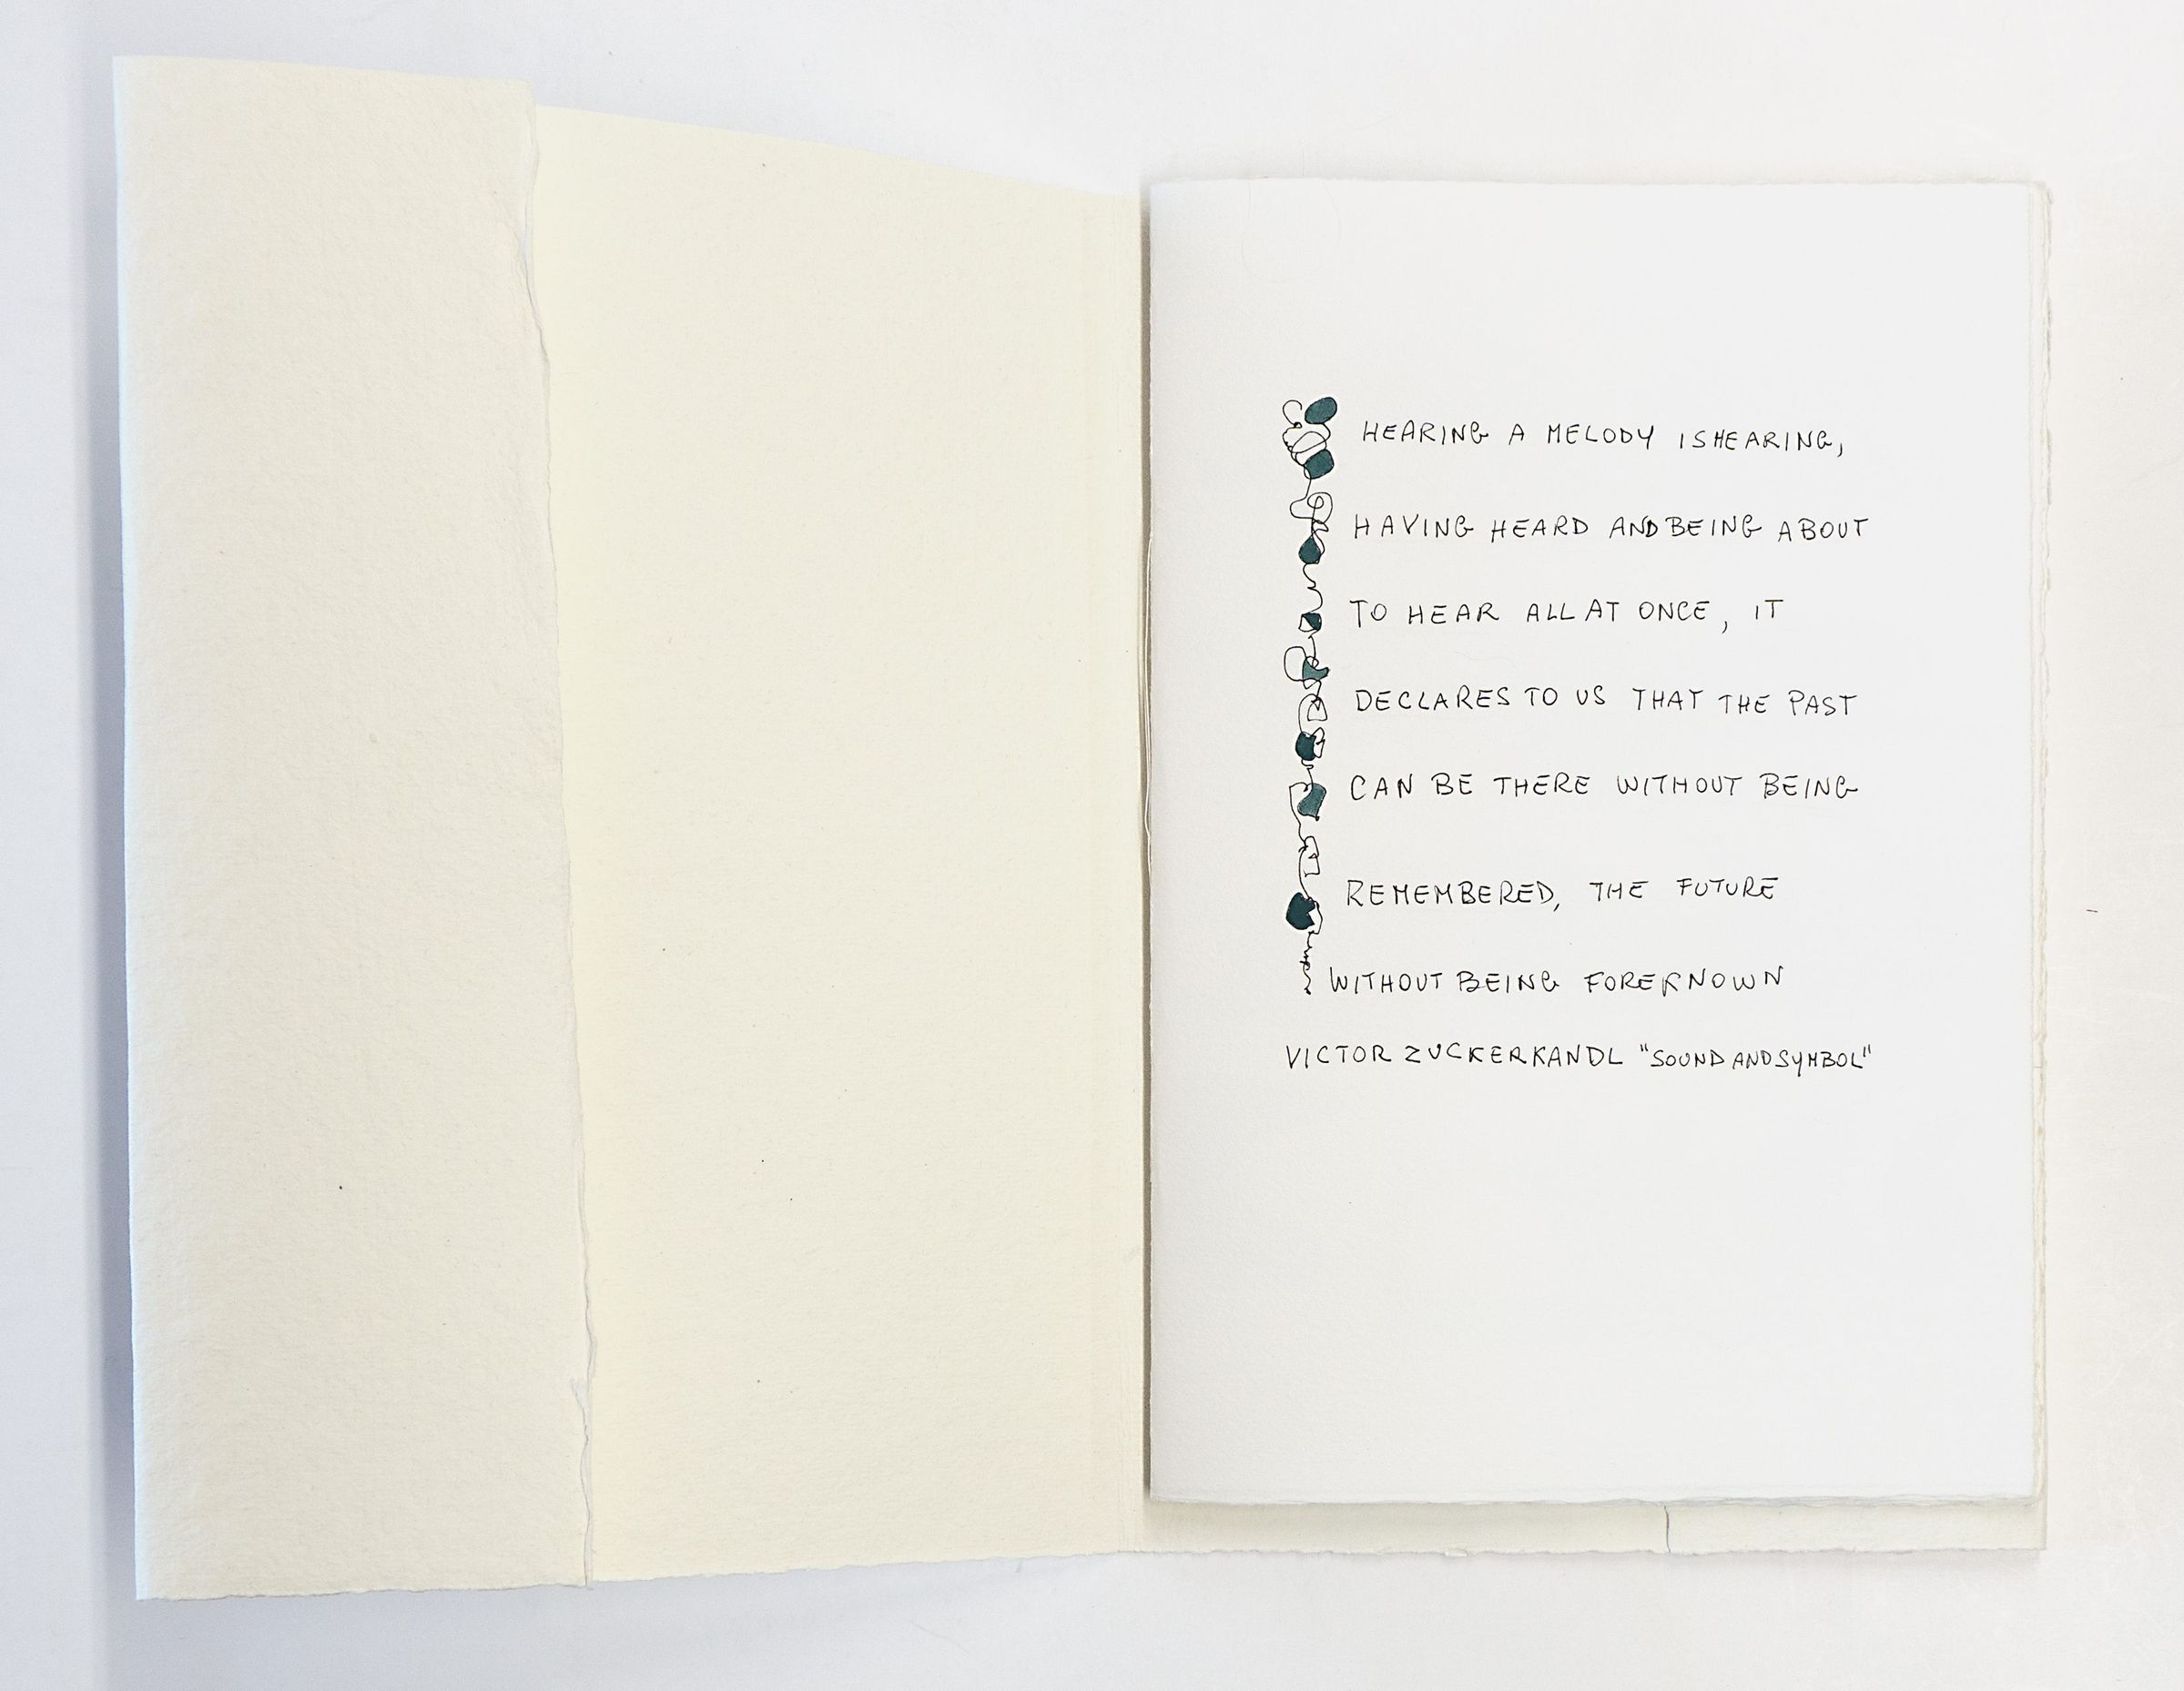 HEARING A MELODY IS HEARING,
HAVING HEARD AND BEING ABOUT
TO HEAR ALL AT ONCE, IT
DECLARES TO US THAT THE PAST
CAN BE THERE WITHOUT BEING
REMEMBERED, THE FUTURE
WITHOUT BEING FOREKNOWN
VICTOR ZUCKERKANDL "SOUND AND SYMBOL"